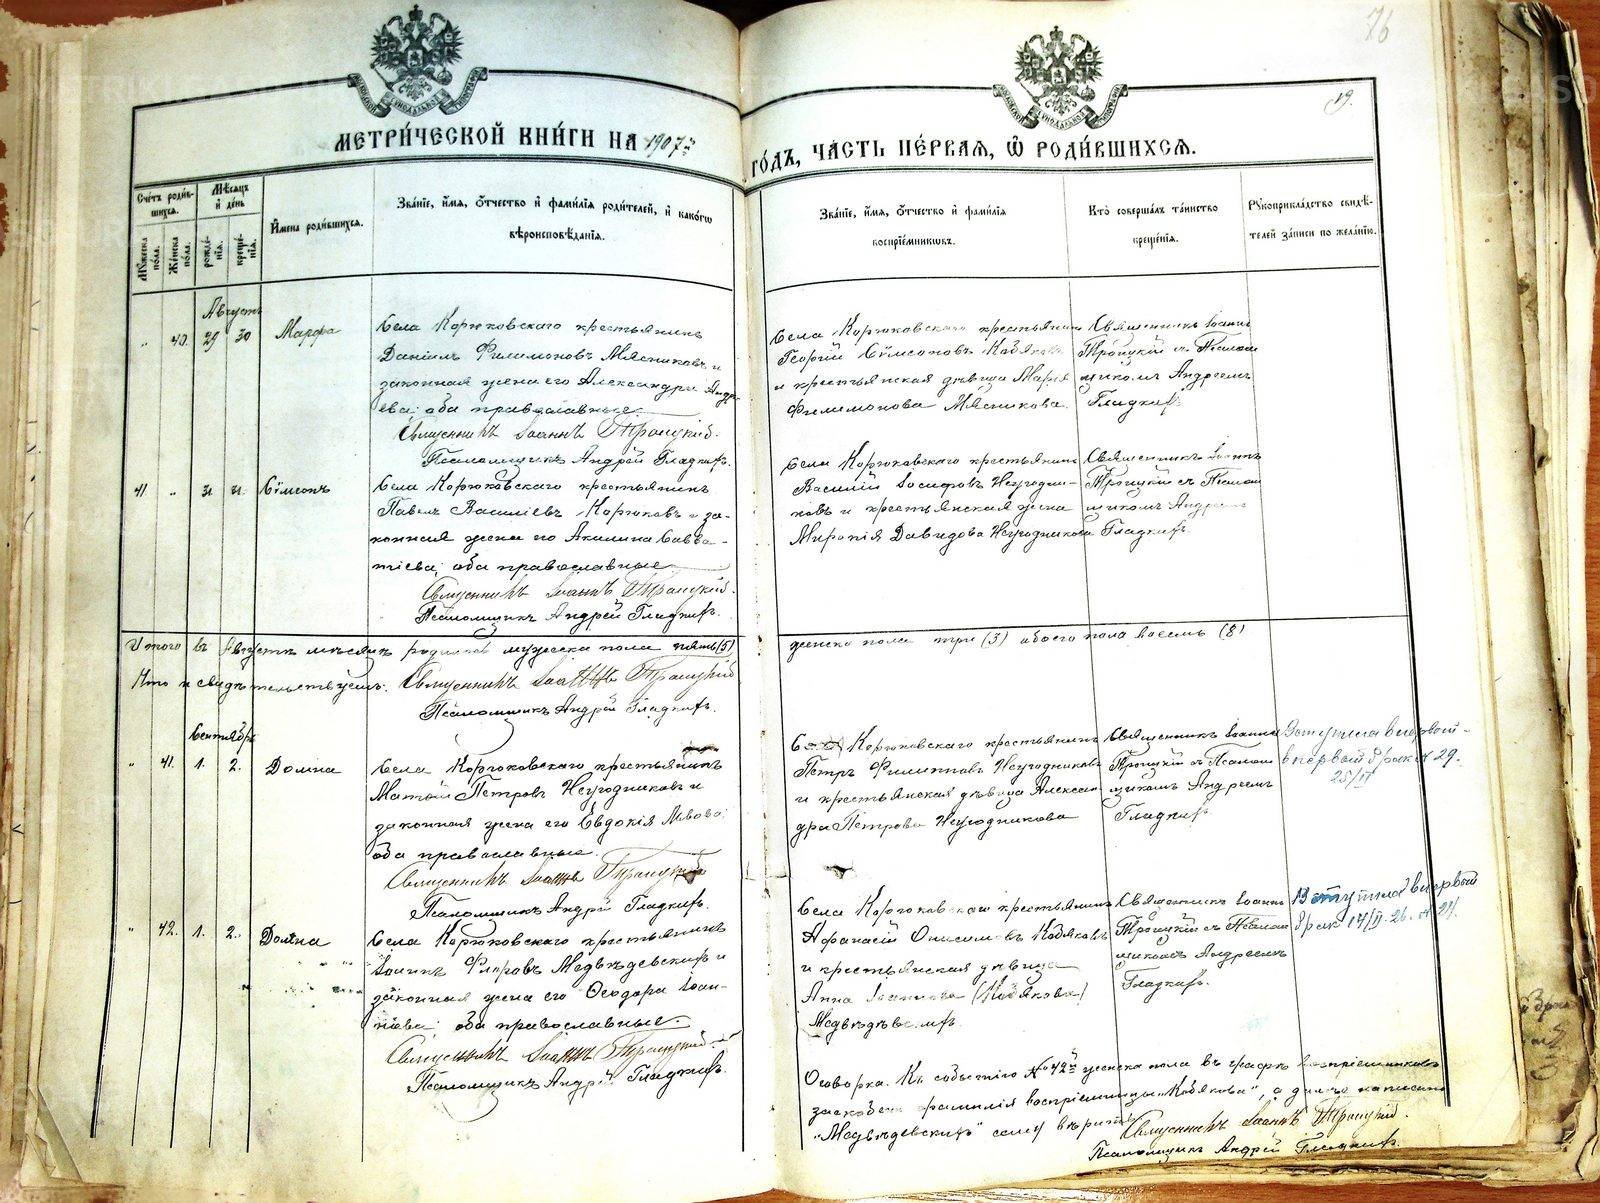 76
19.
МЕТРИ́ЧЕСКОЙ КНИ́ГИ НА 1907й ГО́ДЪ, ЧА́СТЬ ПЕ́РВАЯ, Ѽ РОДИ́ВШИХСЯ.
Сче́тъ роди́в-
шихся.
Мѣ́сяцъ
и҆ де́нь
Мꙋ́жеска
по́ла.
Же́нска
по́ла.
рожде́-
нїя.
креще́-
нїя.
И҆мена роди́вшихся.
Зва́нїе, и҆́мя, ѻ҆́тчество и҆ фами́лїя роди́телей, и҆ како́гѡ
вѣроисповѣ́данїя.
Зва́нїе, и҆́мя, ѻ҆́тчество и҆ фами́лїя
воспрїе́мникѡвъ.
Кто̀ соверша́лъ та́инство
креще́нїя.
Рꙋкоприкла́дство свидѣ́-
телей за́писи по жела́нїю.
Августъ
" 40. 29 30 Марфа
Села Корюковскаго крестьянинъ
Даніилъ Филимоновъ Мясниковъ и
законная жена его Александра Андре
ева; оба православные.
Священникъ Іоаннъ Троицкій.
Псаломщикъ Андрей Гладкихъ.
Села Корюковскаго крестьянинъ
Георгій Сѵмеоновъ Кобяковъ
и крестьянская дѣвица Марія
Филимонова Мясникова.
Священникъ Іоаннъ
Троицкій съ Псалом
щикомъ Андреемъ
Гладкихъ.
41 " 31 31. Сѵмеонъ
Села Корюковскаго крестьянинъ
Павелъ Василіевъ Корюковъ и за-
конная жена его Акилина Савва-
тіева; оба православные
Священникъ Іоаннъ Троицкій.
Псаломщикъ Андрей Гладкихъ.
Села Корюковскаго крестьянинъ
Василій Іосифовъ Неугодни-
ковъ и крестьянская жена
Миропія Давидова Неугодникова
Священникъ Іоаннъ
Троицкій съ Псалом
щикомъ Андреемъ
Гладкихъ.
Итого въ Августѣ мѣсяцѣ родилось мужеска пола пять (5) женска пола три (3) обоего пола восемь (8)
Что и свидѣтельствуемъ: Священникъ Іоаннъ Троицкій
Псаломщикъ Андрей Гладкихъ.
Сентябрь
" 41. 1. 2. Домна
Села Корюковскаго крестьянинъ
Матѳій Петровъ Неугодниковъ и
законная жена его Евдокія Львова;
оба православные.
Священникъ Іоаннъ Троицкій
Псаломщикъ Андрей Гладкихъ.
Корюковскаго крестьянинъ
Петръ Филипповъ Неугодниковъ
и крестьянская дѣвица Алексан
дра Петрова Неугодникова
Священникъ Іоаннъ
Троицкій съ Псалом
щикомъ Андреемъ
Гладкихъ
Вступила в первый
бракъ
29.
" 42. 1. 2. Домна
Села Корюковскаго крестьянинъ
Медвѣдевскихъ и
законная жена его Ѳеодора Іоан-
нова; оба православные.
Священникъ Іоаннъ Троицкій
Псаломщикъ Андрей Гладкихъ.
Села Корюковскаго крестьянинъ
Афанасій Онисимовъ Кобяковъ
и крестьянская дѣвица
Анна Іоаннова (Кобякова)
Медвѣдевскихъ.
Священникъ Іоаннъ
Троицкій съ Псалом
щикомъ Андреемъ
Гладкихъ.
Вступила в первый
брак
Оговорка. Къ событію № 42й женска пола въ графѣ воспріемниковъ
фамилія воспріемницы „Кобякова", а далѣе написано
„Медвѣдевскихъ" сему вѣрить
Священникъ Іоаннъ Троицкій.
Псаломщикъ Андрей Гладкихъ.